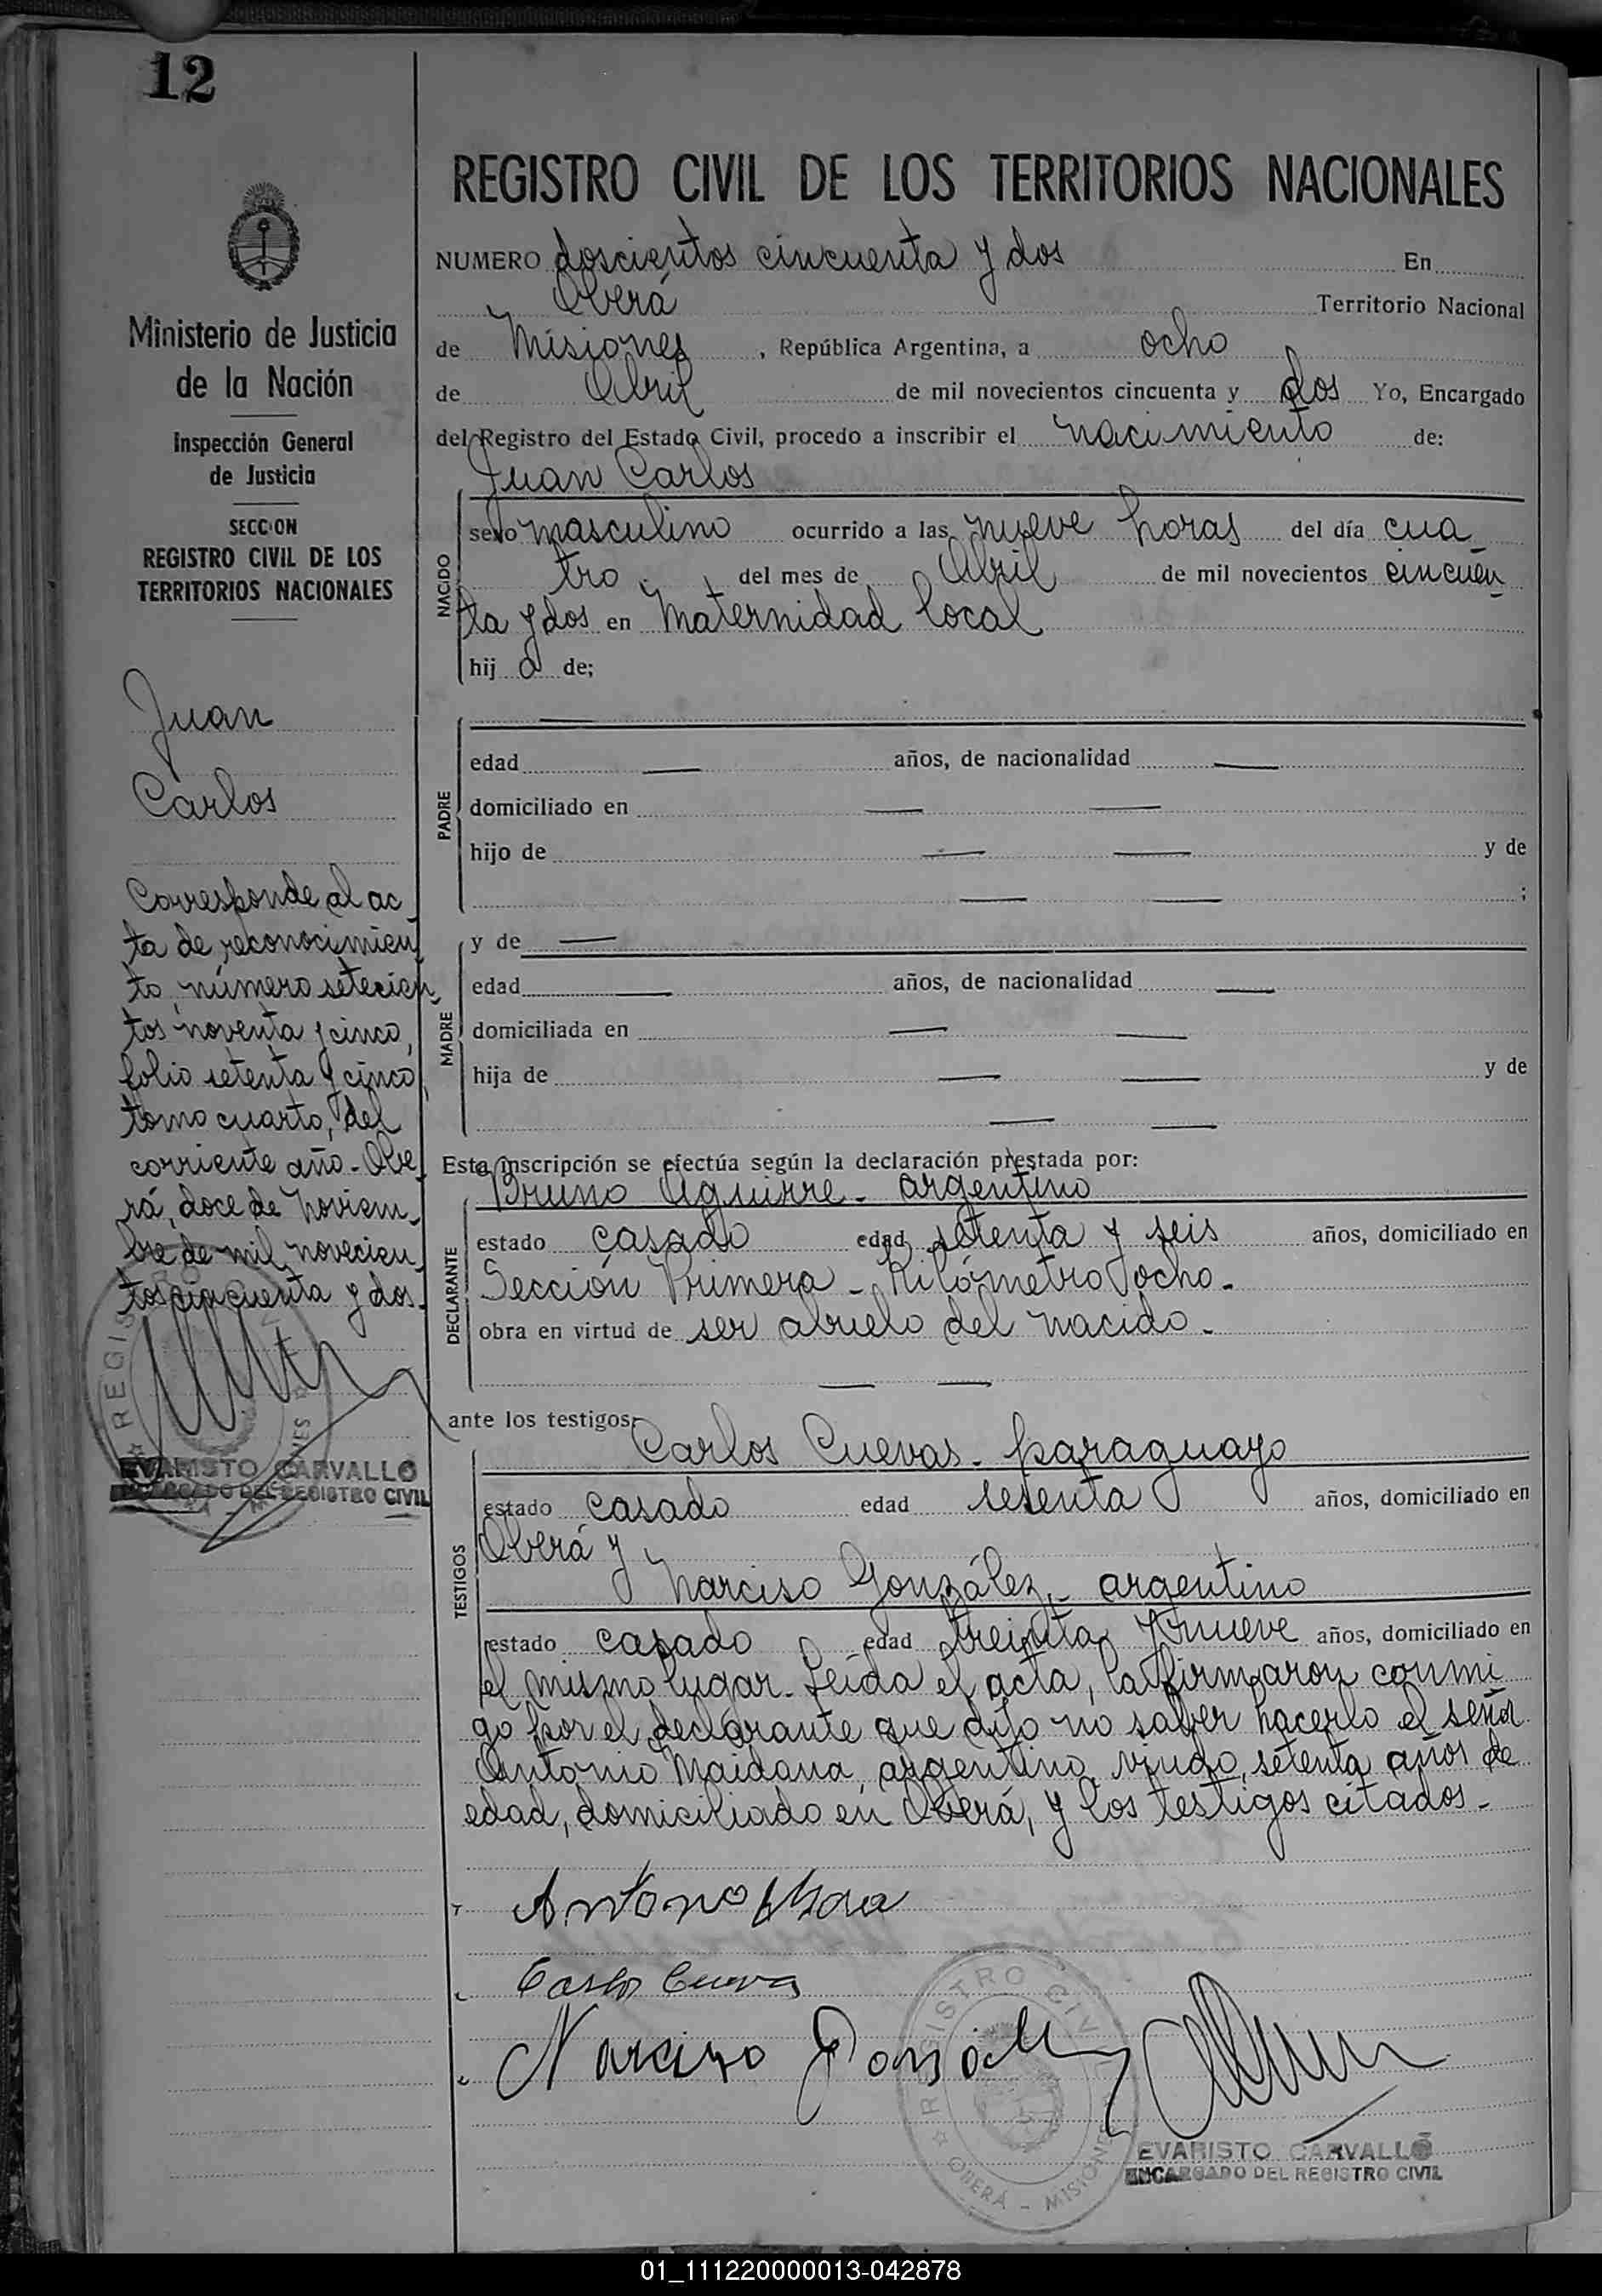 12
Ministerio de Justicia
de la Nación
Inspección General
de Justicia
SECCION
REGISTRO CIVIL DE LOS
TERRITORIOS NACIONALES
Juan
Carlos
Corresponde al ac
ta de reconocimien
to, número setecien
tos noventa y cinco,
folio setenta y cinco
tomo cuarto, del
corriente año - Obe
rá, doce de Noviem-
bre de mil novecien
tos cincuenta y dos.
EVARISTO CARVALLO
ENCARGADO DEL REGISTRO CIVIL
REGISTRO CIVIL DE LOS TERRITORIOS NACIONALES
NUMERO doscientos cincuenta y dos En
Oberá Territorio Nacional
de Misiones, República Argentina, a ocho
de Abril de mil novecientos cincuenta y dos Yo, Encargado
del Registro del Estado Civil, procedo a inscribir el nacimiento de:
Juan Carlos
NACIDO
sexo masculino ocurrido a las nueve horas del día cua-
tro. del mes de Abril de mil novecientos cincuen
ta y dos en Maternidad local
hij o de;
PADRE
edad años, de nacionalidad
domiciliado en
hijo de y de
;
MADRE
y de
edad años, de nacionalidad
domiciliada en
hija de y de
Esta inscripción se efectúa según la declaración prestada por:
DECLARANTE
Bruno Aguirre - argentino
estado casado edad setenta y seis años, domiciliado en
Sección Primera - Kilómetro ocho -
obra en virtud de ser abuelo del nacido -
ante los testigos:
TESTIGOS
Carlos Cuevas - paraguayo
estado casado edad setenta años, domiciliado en
Oberá y
Narciso González - argentino
estado casado edad treinta y nueve años, domiciliado en
el mismo lugar. Leída el acta, la firmaron conmi
go por el declarante que dijo no saber hacerlo el señor
Antonio Maidana, argentino, viudo, setenta años de
edad, domiciliado en Oberá, y los testigos citados -
Carlos Cuevas
Narciso
REGISTRO CIVIL
OBERÁ - MISIONES
EVARISTO CARVALLO
ENCARGADO DEL REGISTRO CIVIL
01_111220000013-042878